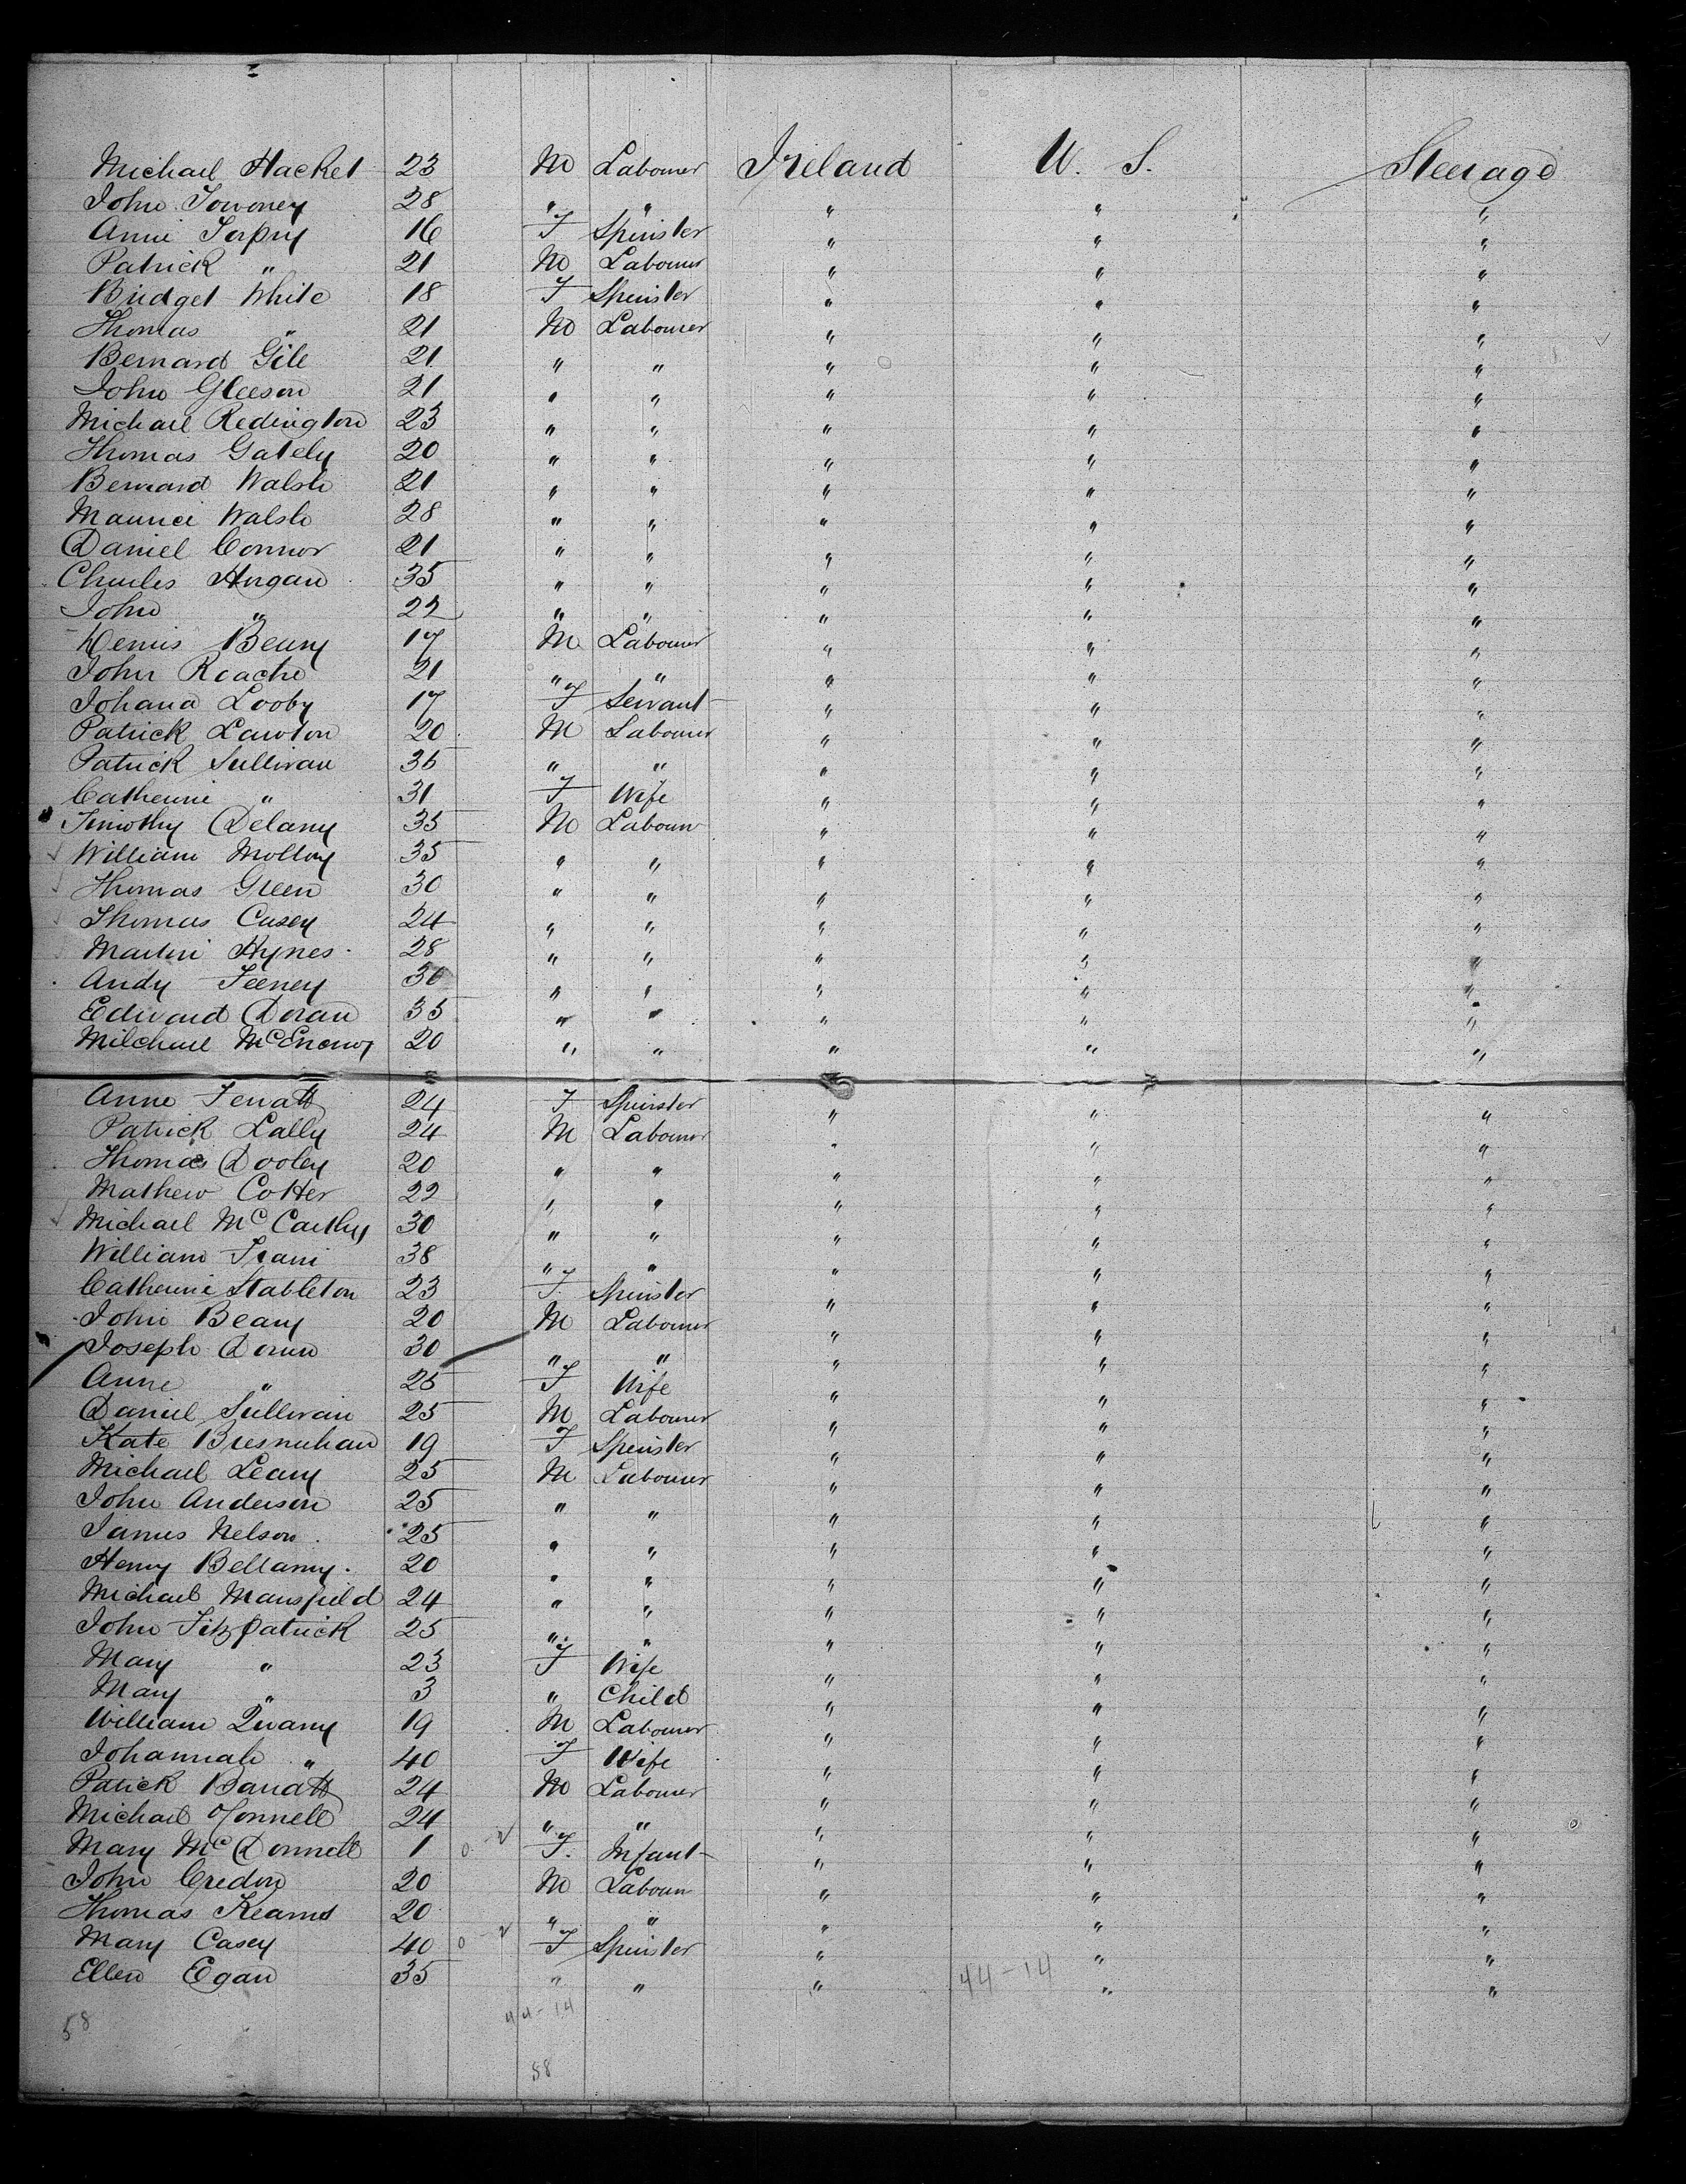 Michael Hacket 23 M Labourer Ireland U. S. Steerage
John Towoney 28 " " " " "
Anni Torpey 16 F Spinster " " "
Patrick " 21 M Labourer " " "
Bridget White 18 F Spinster " " "
Thomas " 21 M Labourer " " "
Bernard Gile 21 " " " " "
John Gleeson 21 " " " " "
Michael Redington 23 " " " " "
Thomas Gately 20 " " " " "
Bernard Walsh 21 " " " " "
Maurice Walsh 28 " " " " "
Daniel Connor 21 " " " " "
Charles Horgan 35 " " " " "
John " 22 " " " " "
Denis Beary 17 M Labourer " " "
John Roache 21 " " " " "
Johana Looby 17 F Servant " " "
Patrick Lawton 20 M Labourer " " "
Patrick Sullivan 35 " " " " "
Catherine " 31 F Wife " " "
Timothy Delany 35 M Labourer " " "
William Molloy 35 " " " " "
Thomas Green 30 " " " " "
Thomas Casey 24 " " " " "
Martin Hynes 28 " " " " "
Andy Feeney 30 " " " " "
Edward Doran 35 " " " " "
Milchael 20 " " " " "
Anne 24 F Spinster " " "
Patrick Lally 24 M Labourer " " "
Thomas Dooley 20 " " " " "
Mathew Cotter 22 " " " " "
Michael McCarthy 30 " " " " "
William 38 " " " " "
Catherine Stableton 23 F Spinster " " "
John Beary 20 M Labourer " " "
Joseph Doran 30 " " " " "
Anne " 25 F Wife " " "
Daniel Sullivan 25 M Labourer " " "
Kate Bresnahan 19 F Spinster " " "
Michael Leary 25 M Labourer " " "
John Anderson 25 " " " " "
James Nelson 25 " " " " "
Henry Bellamy 20 " " " " "
Michael Mansfield 24 " " " " "
John Fitzpatrick 25 " " " " "
Mary " 23 F Wife " " "
Mary " 3 " Child " " "
William 19 M Labourer " " "
Johannah " 40 F Wife " " "
Patick Barratt 24 M Labourer " " "
Michael 24 " " " " "
Mary McDonnell 1 F. Infant " " "
John Credon 20 M Labourer " " "
Thomas Kearns 20 " " " " "
Mary Casey 40 F Spinster " " "
Ellen Egan 35 " " " 44-14 " "
58 44-14
58